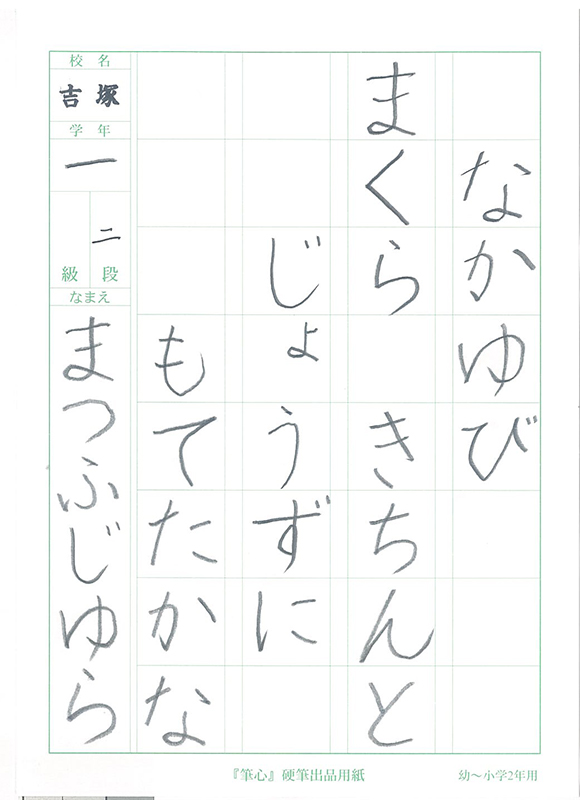 なかゆび
まくら きちんと
じょうずに
もてたかな
校名
吉塚
学年
一
二
級 段
なまえ
まつふじゆら
『筆心』硬筆出品用紙
幼〜小学2年用